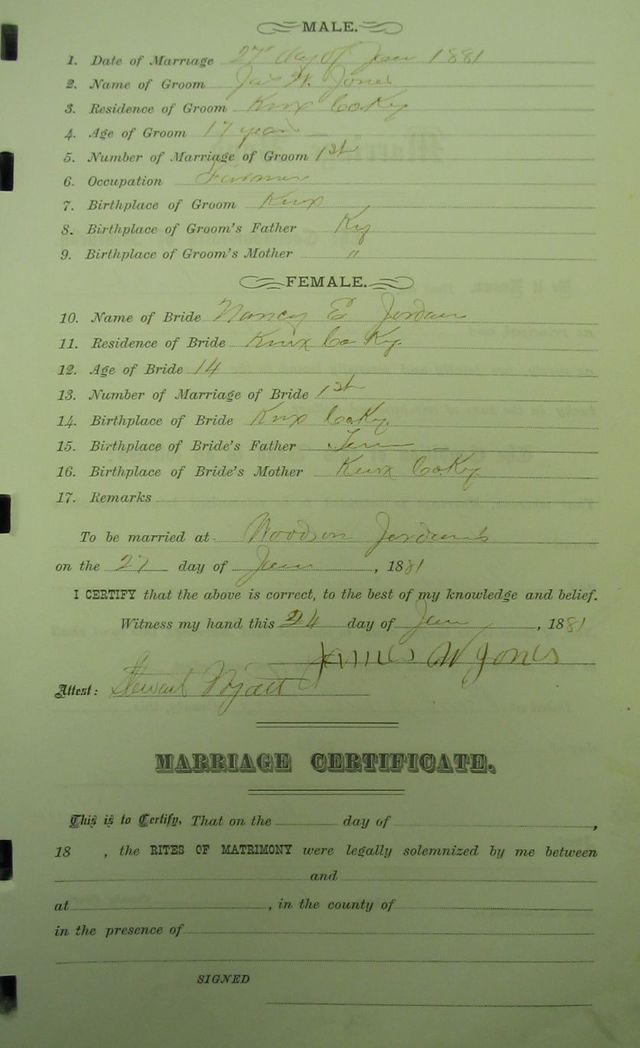 MALE.
1. Date of Marriage 27" day of Jan 1881
2. Name of Groom Jas W. Jones
3. Residence of Groom Knox Co Ky
4. Age of Groom 17 years
5. Number of Marriage of Groom 1st
6. Occupation Farmer
7. Birthplace of Groom Knox
8. Birthplace of Groom's Father Ky
9. Birthplace of Groom's Mother "
FEMALE.
10. Name of Bride Nancy E Jordan
11. Residence of Bride Knox Co Ky
12. Age of Bride 14
13. Number of Marriage of Bride 1st
14. Birthplace of Bride Knox Co Ky
15. Birthplace of Bride's Father Tenn
16. Birthplace of Bride's Mother Knox Co Ky
17. Remarks
To be married at Woodson Jordan's
on the 27 day of Jan, 1881
I CERTIFY that the above is correct, to the best of my knowledge and belief.
Witness my hand this 24 day of Jan, 1881
James W Jones
Attest: Stewart
MARRIAGE CERTIFICATE.
This is to Certify, That on the day of ,
18 , the RITES OF MATRIMONY were legally solemnized by me between
and
at , in the county of
in the presence of
SIGNED